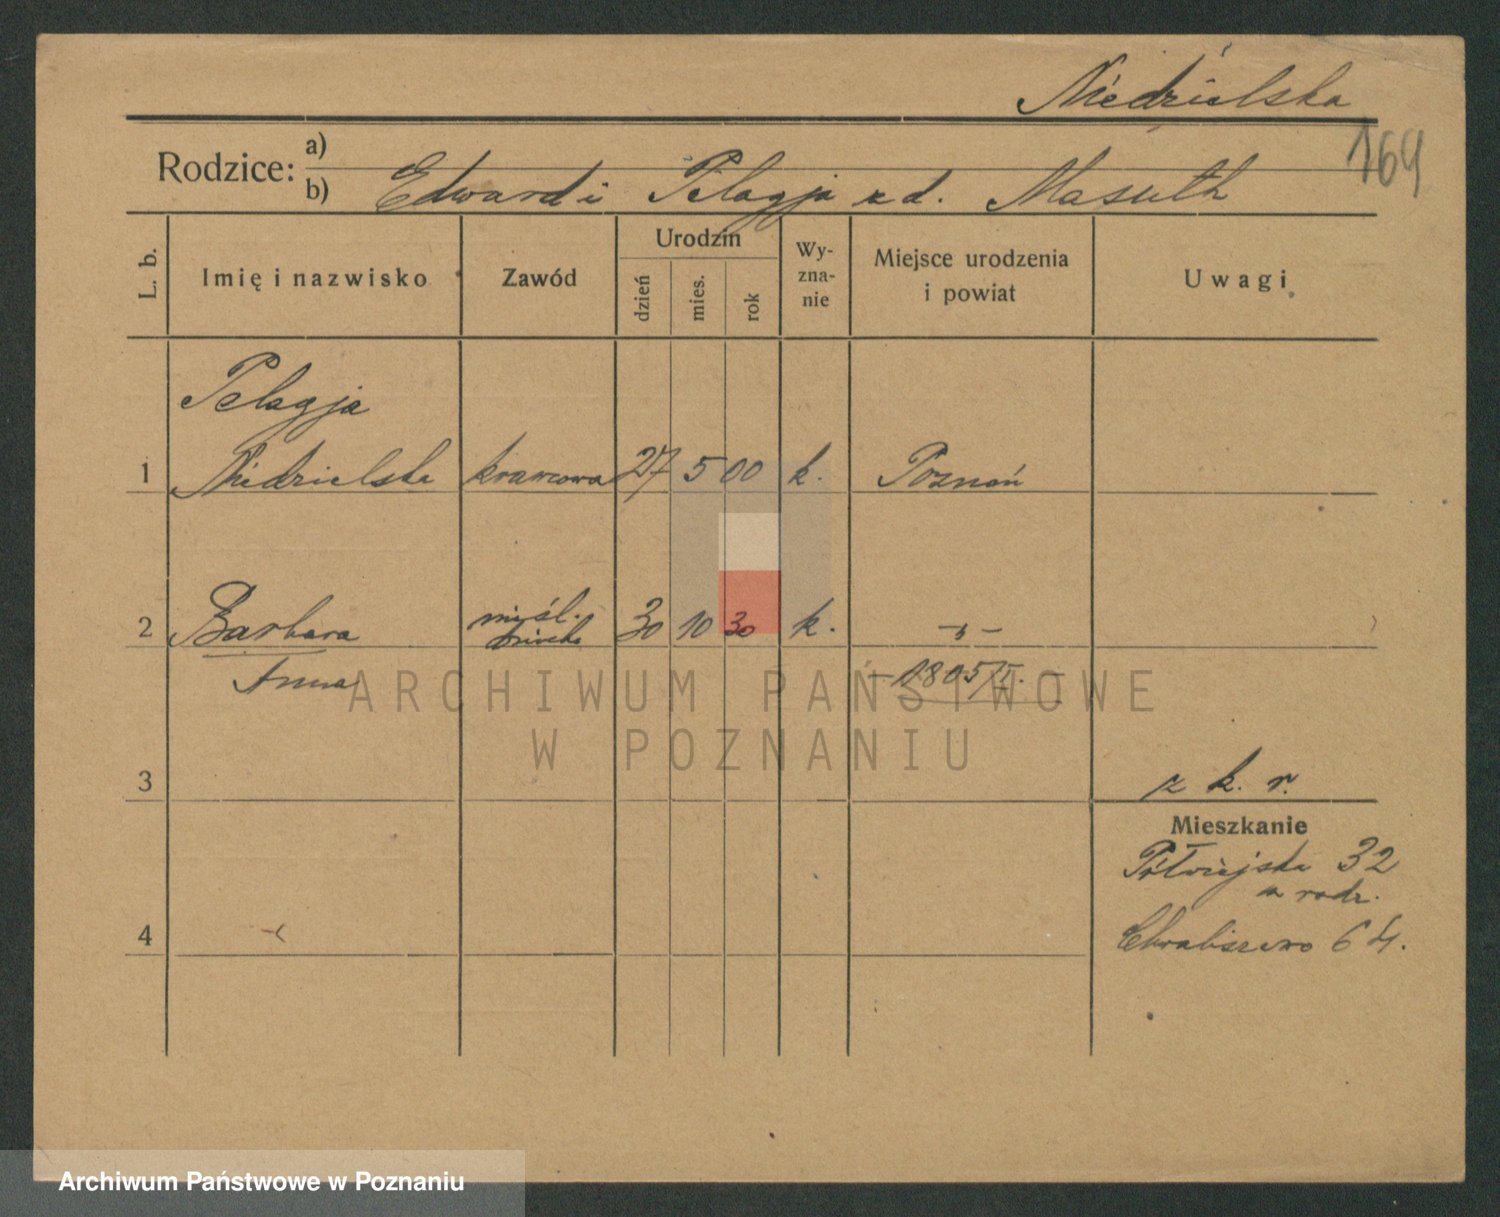 Niedzielska
169
Rodzice: a)
b) Edward i Pelagja z d. Masuth
L. b. Imię i nazwisko Zawód Urodzin dzień mies. rok Wy-zna-nie Miejsce urodzenia i powiat Uwagi
Pelagja
1 Niedzielska krawcowa 27 5 00 k. Poznań
2 Barbara nieśl. dziecko 30 10 30 k. -"-
Anna - 1805/I. -
ARCHIWUM PAŃSTWOWE
W POZNANIU
3 z k. r.
Mieszkanie
Półwiejska 32
u rodz.
4 Chwaliszewo 64.
Archiwum Państwowe w Poznaniu